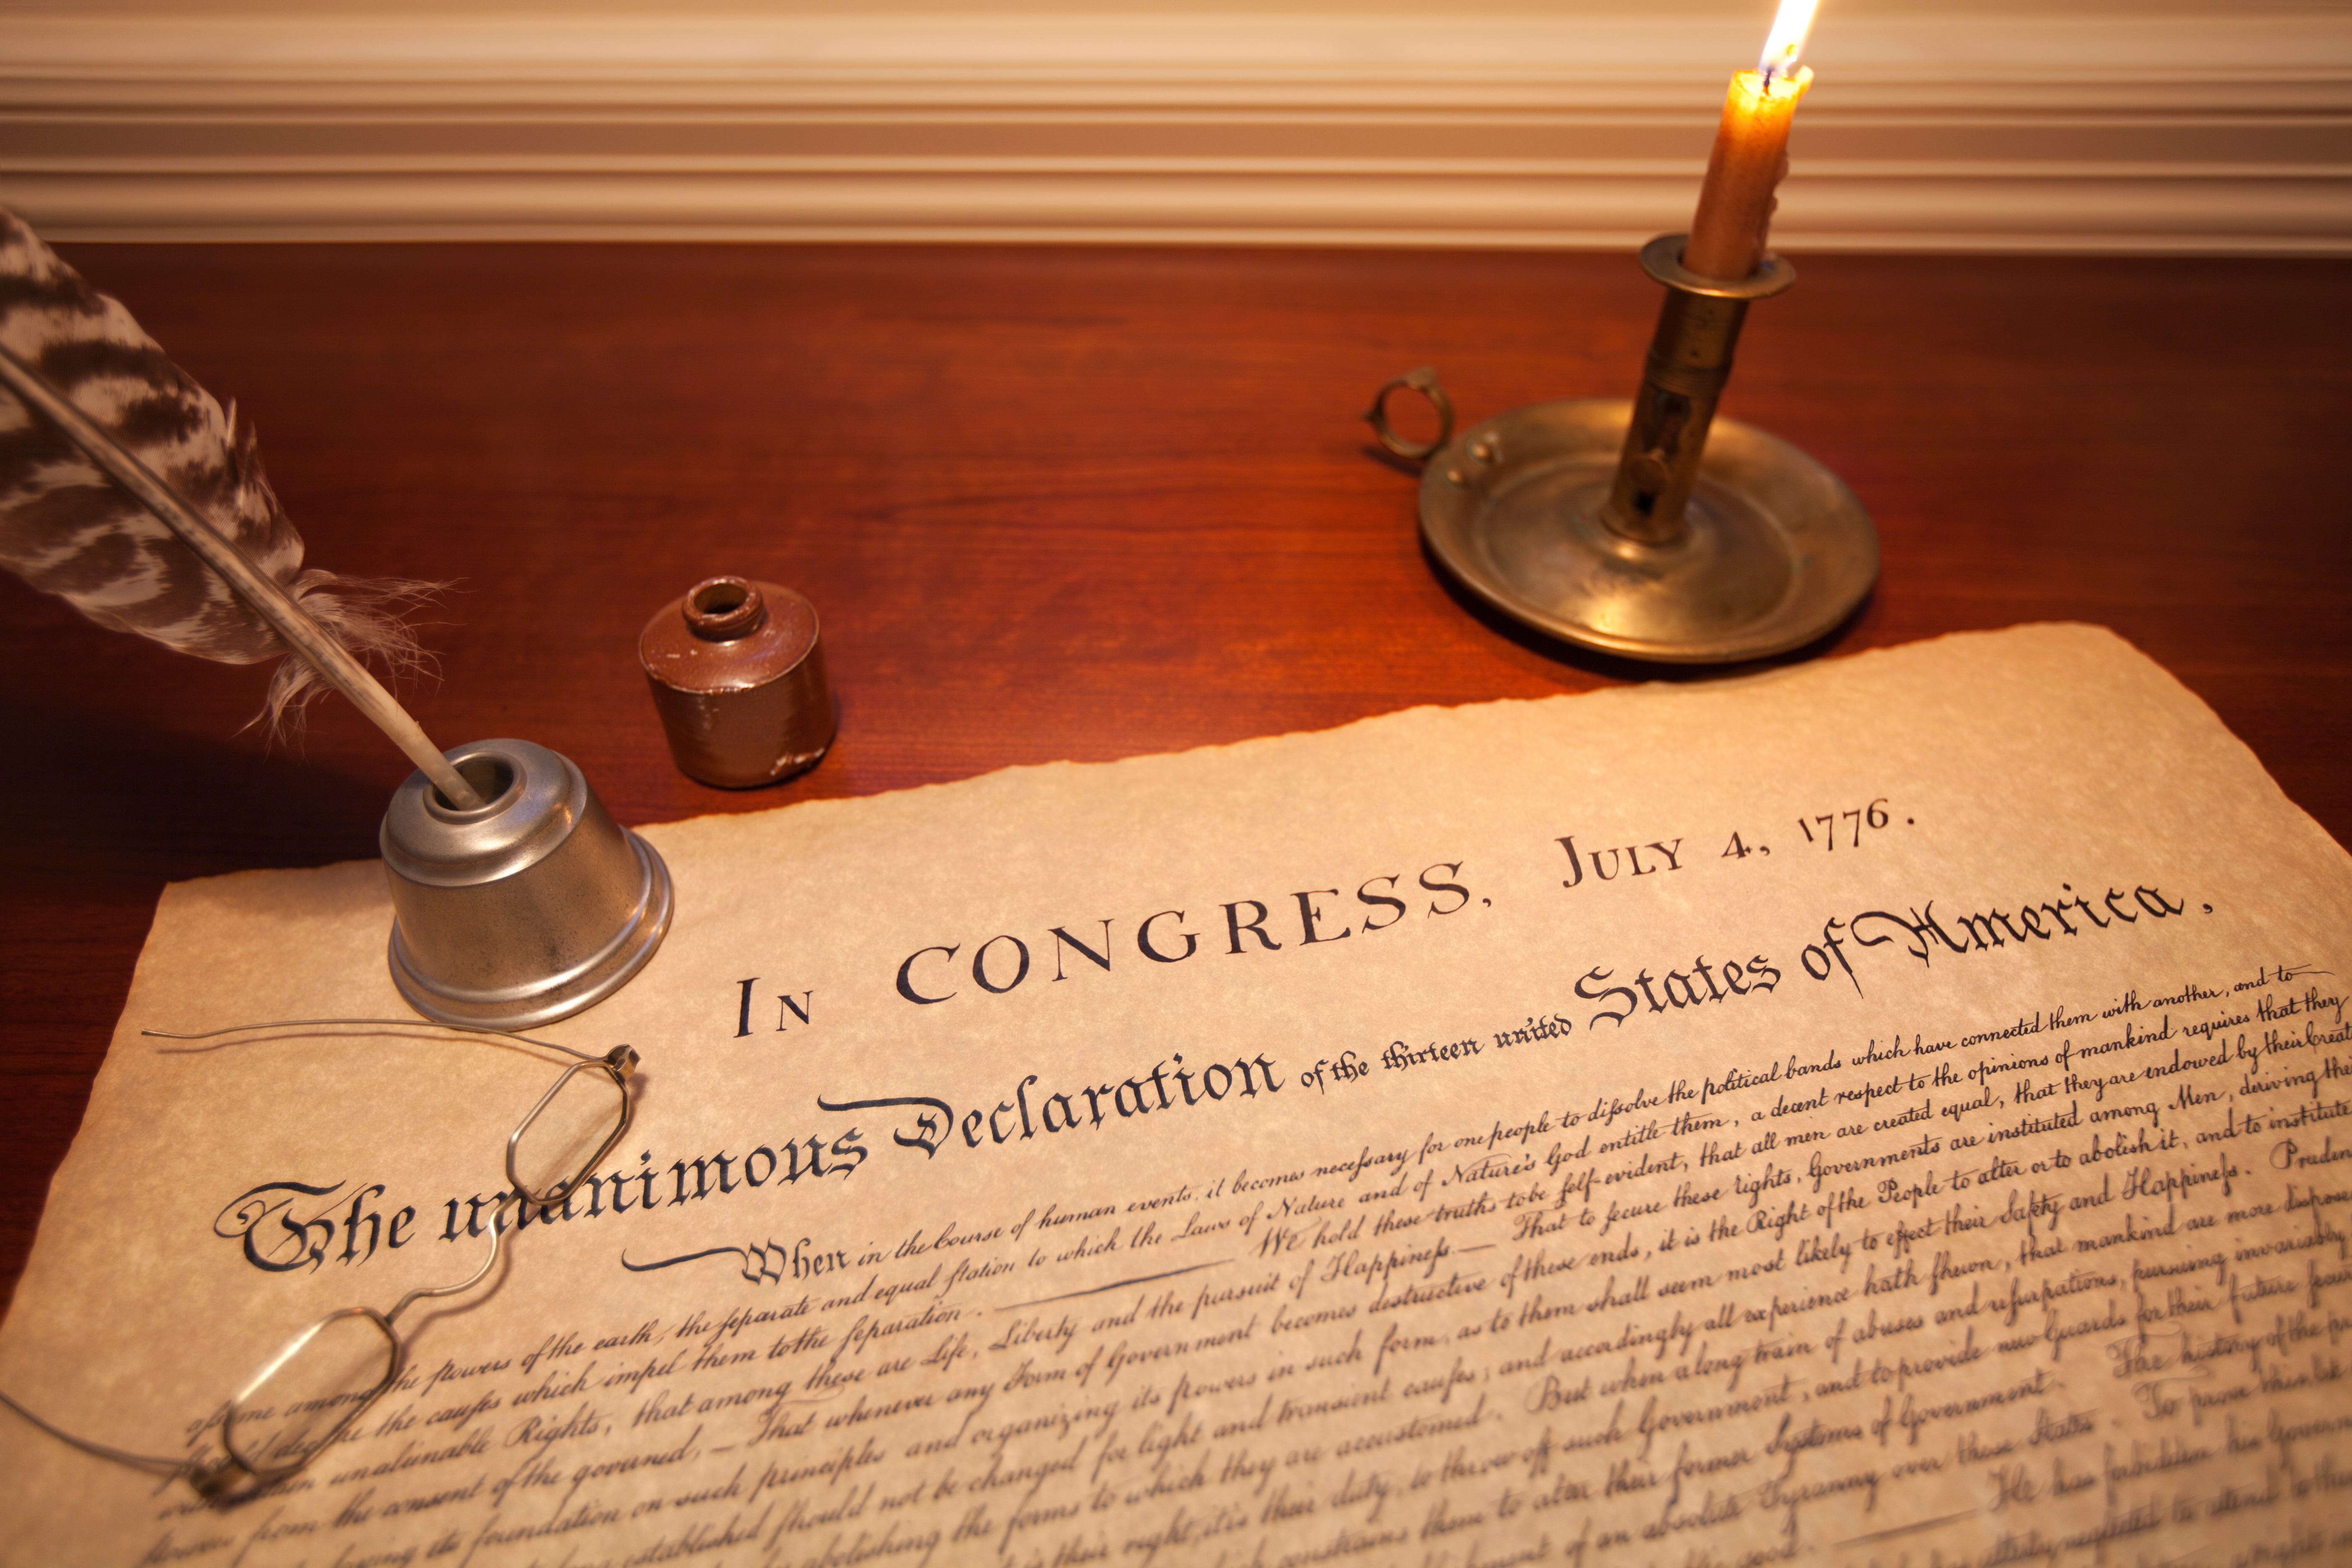 In CONGRESS, July 4, 1776.
The unanimous Declaration of the thirteen united States of America,
When in the Course of human events, it becomes necessary for one people to dissolve the political bands which have connected them with another, and to
among the powers of the earth, the separate and equal station to which the Laws of Nature and of Nature's God entitle them, a decent respect to the opinions of mankind requires that they
should declare the causes which impel them to the separation. — We hold these truths to be self-evident, that all men are created equal, that they are endowed by their
unalienable Rights, that among these are Life, Liberty and the pursuit of Happiness. — That to secure these rights, Governments are instituted among Men, deriving
from the consent of the governed, — That whenever any Form of Government becomes destructive of these ends, it is the Right of the People to alter or to abolish it, and to institute
laying its foundation on such principles and organizing its powers in such form, as to them shall seem most likely to effect their Safety and Happiness.
established should not be changed for light and transient causes; and accordingly all experience hath shewn, that mankind are more
abolishing the forms to which they are accustomed. But when a long train of abuses and usurpations, pursuing invariably
is their right, it is their duty, to throw off such Government, and to provide new Guards for their future
constrains them to alter their former Systems of Government. The history of the
of an absolute Tyranny over these States. To prove this
He has forbidden his